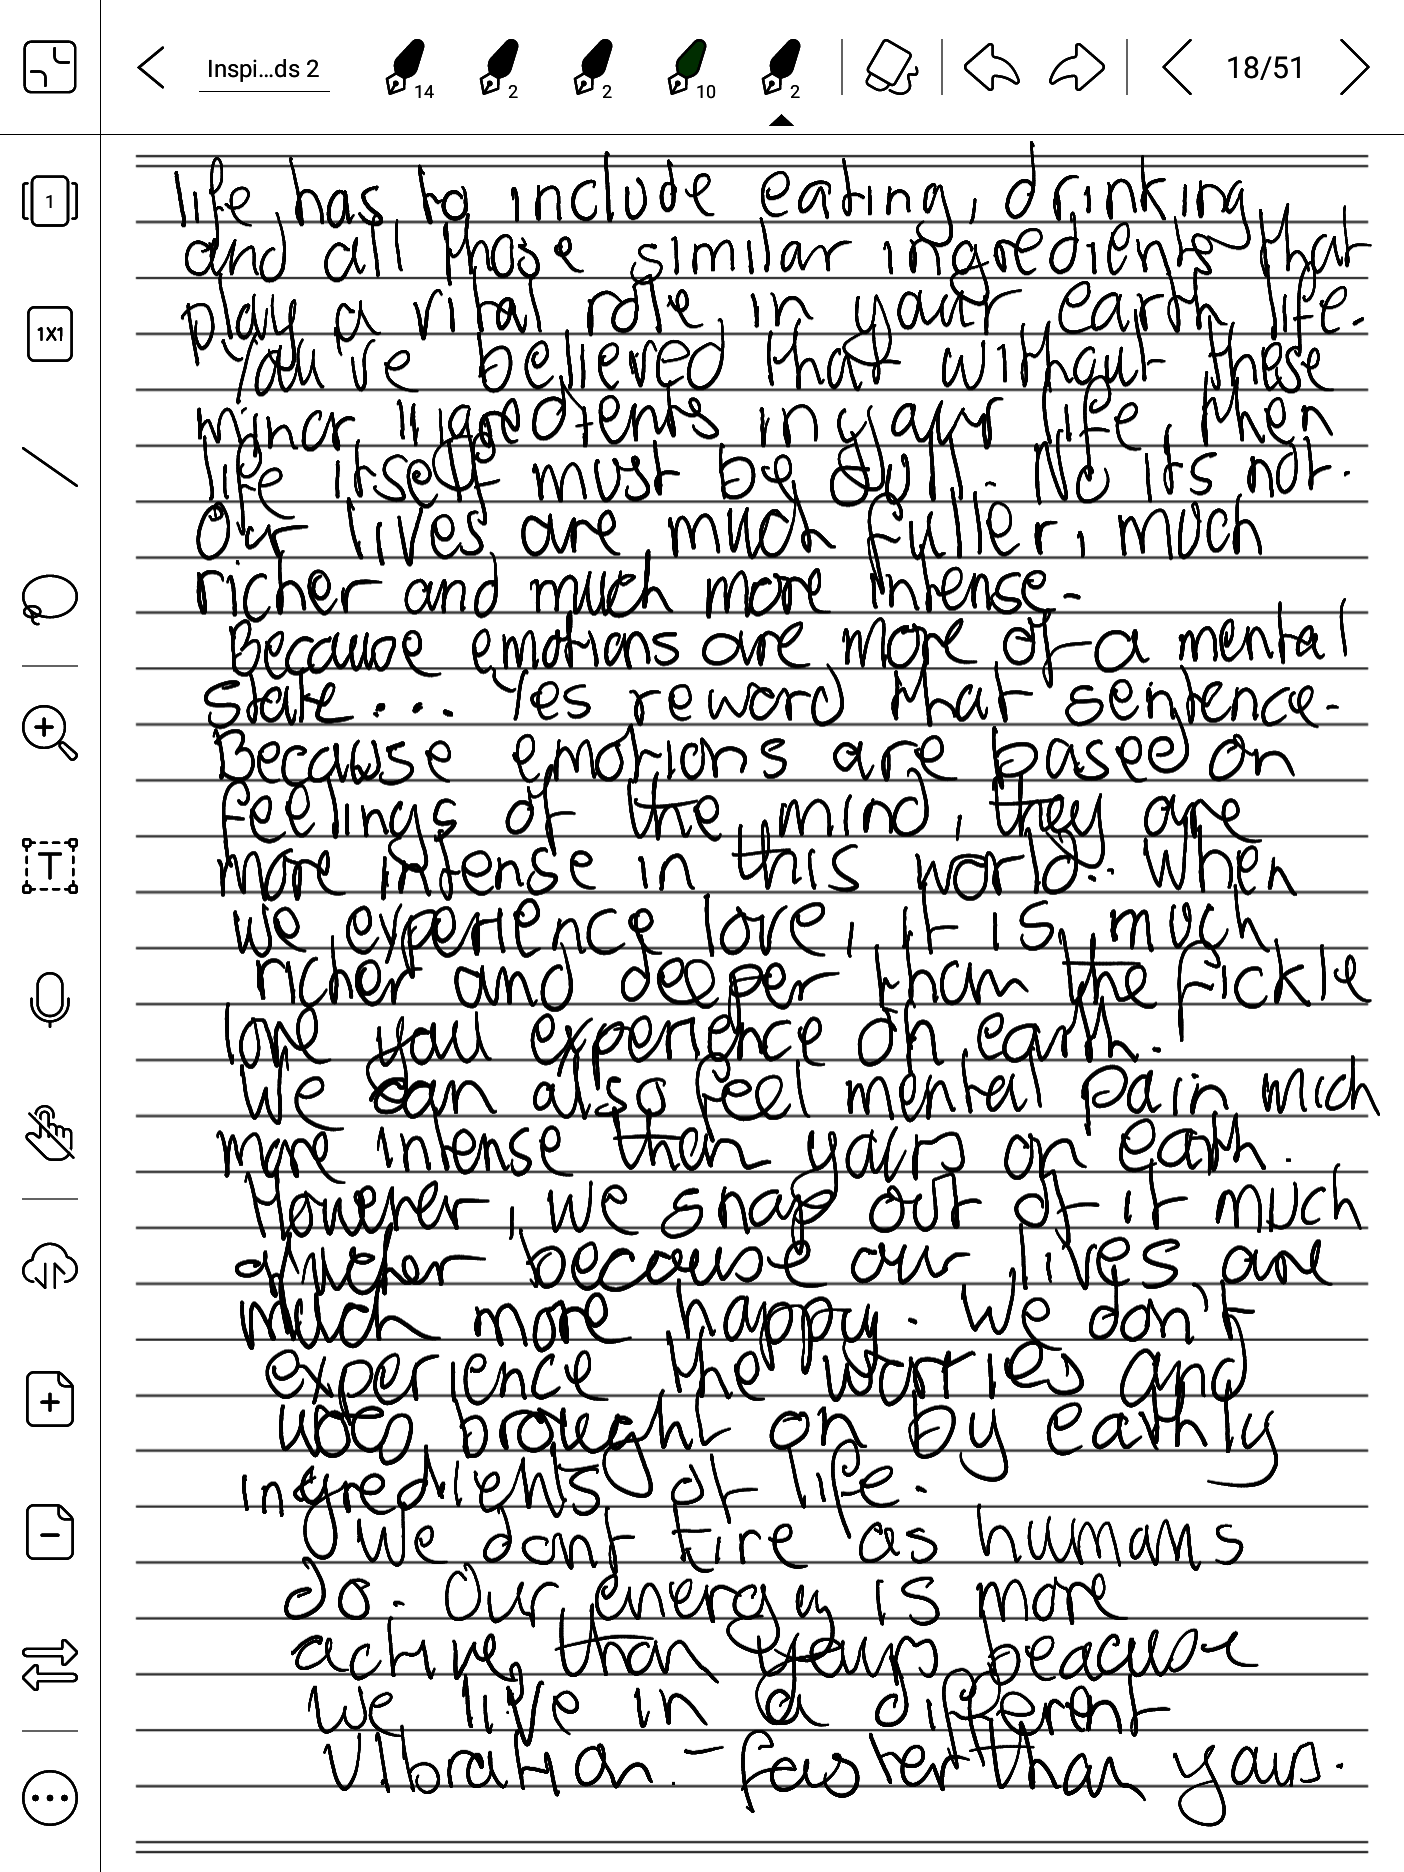 Inspi...ds 2
14
2
2
10
2
18/51
1
1X1
T
life has to include eating, drinking
and all those similar ingredients that
play a vital role in your earth life.
You've believed that without these
minor ingredients in your life, then
life itself must be dull. No its not.
Our lives are much fuller, much
richer and much more intense.
Because emotions are more of a mental
state... Yes reword that sentence.
Because emotions are based on
feelings of the mind, they are
more intense in this world.. When
we experience love, it is much
richer and deeper than the fickle
love you experience on earth.
We can also feel mental pain mich
more intense then yours on earth.
However, we snap out of it much
quicker because our lives are
much more happy. We don't
experience the worries and
woes brought on by earthly
ingredients of life.
We dont tire as humans
do. Our energy is more
active than yours beacuse
we live in a different
vibration - faster than yours.